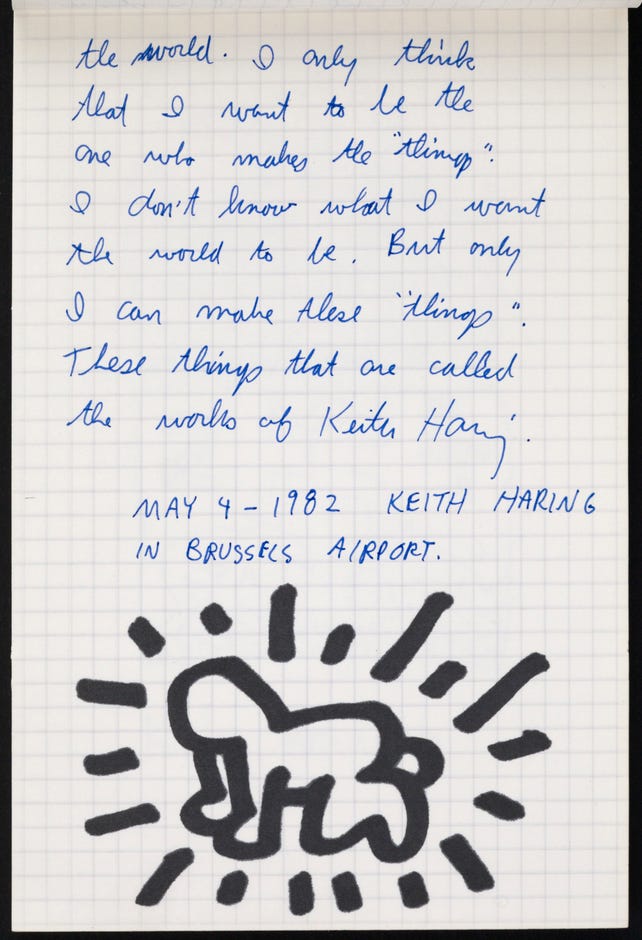 the world. I only think
that I want to be the
one who makes the "things".
I don't know what I want
the world to be. But only
I can make these "things".
These things that are called
the works of Keith Haring.
MAY 4 - 1982 KEITH HARING
IN BRUSSELS AIRPORT.